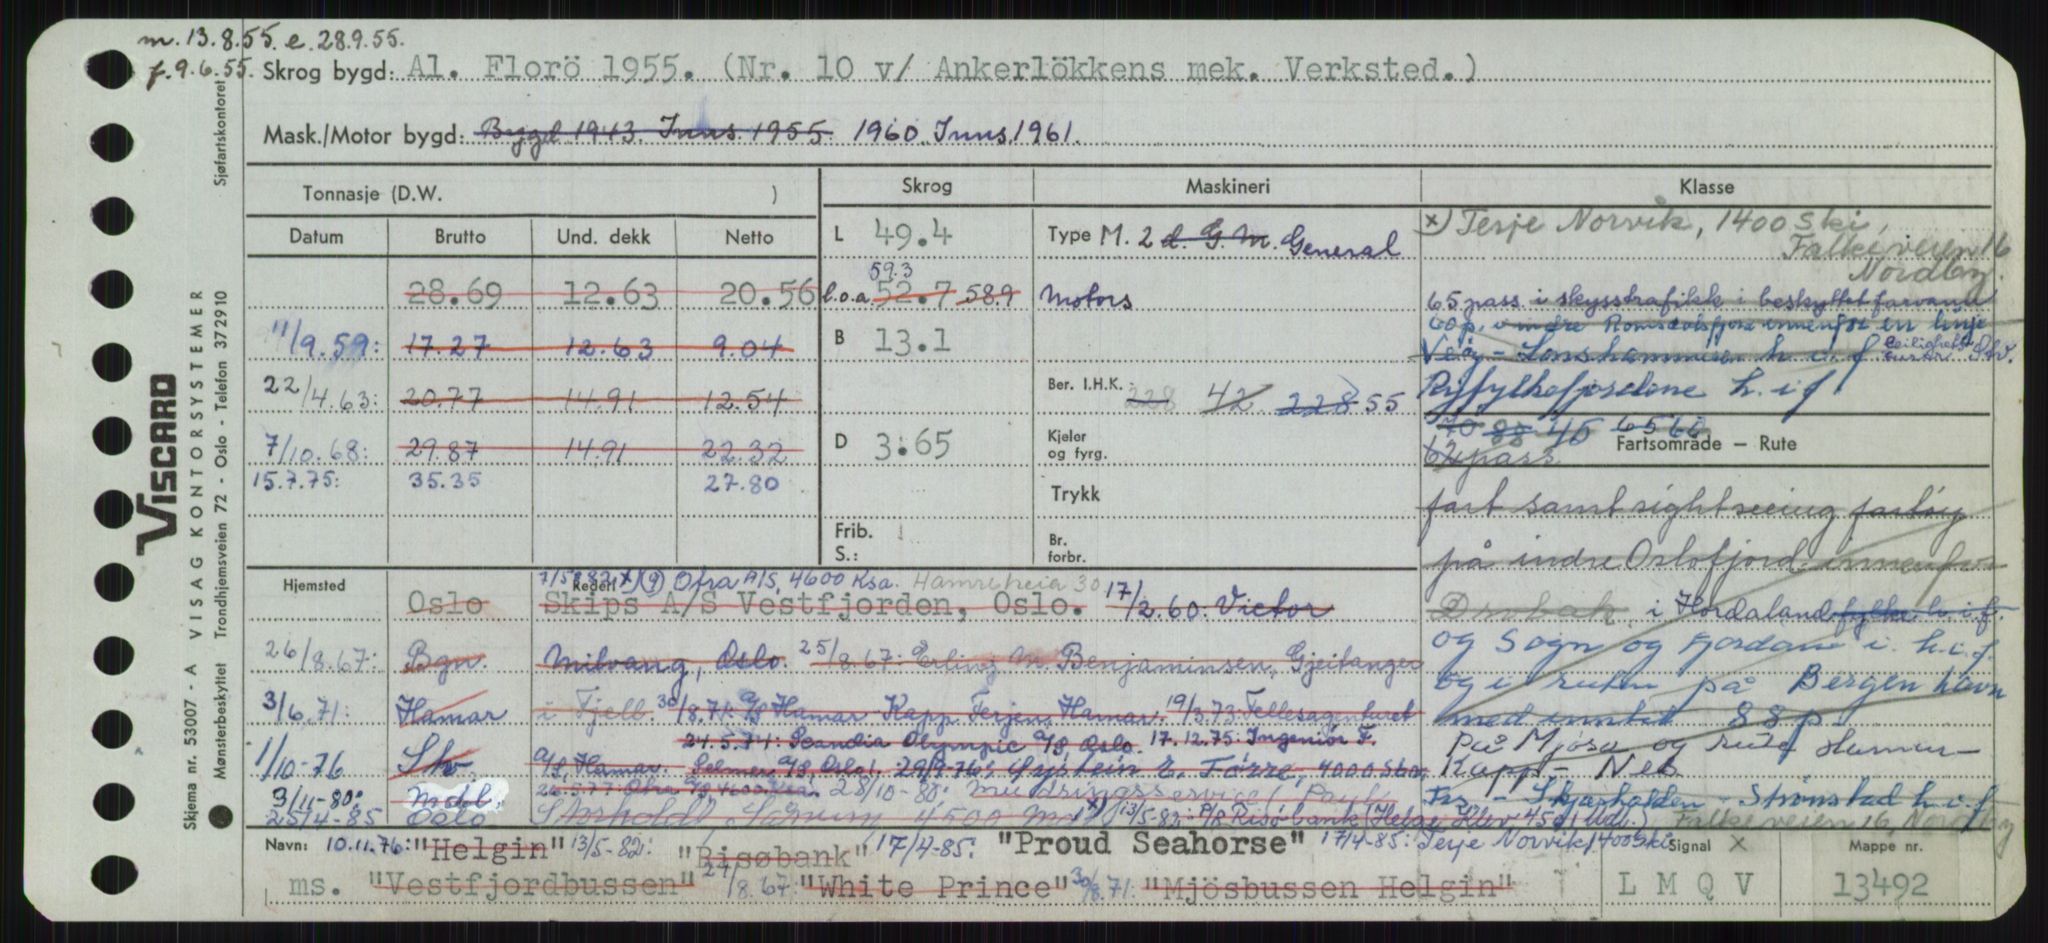 m. 13.8.55. e. 28.9.55.
f. 9.6.55. Skrog bygd: Al. Florö 1955. (Nr. 10 v/ Ankerlökkens mek. Verksted.)
Mask./Motor bygd: Bygd 1943. Inns. 1955. 1960. Inns. 1961.
Tonnasje (D.W. ) Skrog Maskineri Klasse
Datum Brutto Und. dekk Netto
28.69 12.63 20.56
11/9.59: 17.27 12.63 9.04
22/4.63: 20.77 14.91 12.54
7/10.68: 29.87 14.91 22.32
15.7.75: 35.35 27.80
L 49.4
59.3
l.o.a. 52.7 58.9
B 13.1
D 3.65
Frib.
S.:
Type M. 2 d. G.M. General
Motors
Ber. I.H.K. 228 42 228 55
Kjeler
og fyrg.
Trykk
Br.
forbr.
x) Terje Norvik, 1400 Ski,
Falkeveien 16
Nordby.
65 pass. i skysstrafikk i beskyttet farvann
60 p. indre Romsdalsfjord innenfor en linje
h. i. f.
Ryfylkefjordene h. i f
70 88 45 65 66
62 pass. Fartsområde – Rute
fart samt sightseeing fartøy
på indre Oslofjord innenfor
Drøbak i Hordaland fylke h.i.f.
og Sogn og Fjordane i. h.i.f.
og i ruten på Bergen havn
med inntil 88 p
På Mjösa og rute Hamar-
Kapp - Nes
- Skjærhalden - Strömstad h.i.f.
Falkeveien 16, Nordby
Hjemsted Rederi 7/5 82 x)(9) Ofra A/S, 4600 Ksa. Hamreheia 30
Oslo Skips A/S Vestfjorden, Oslo. 17/2.60: Victor
26/8.67: Bgn. Milvang, Oslo. 25/8.67: Erling M. Benjaminsen, Gjeitanger
3/6.71: Hamar i Fjell. 30/8.71: A/S Hamar Kapp Ferjen, Hamar. 19/3.73: Fellesagenturet
24.5.74: Scandia Olympic A/S Oslo. 17.12.75: Ingeniør F.
1/10-76 Stv. A/S, Hamar. Selmer A/S, Oslo. 29/9-76: Øystein E. Tørre, 4000 Stv.
3/11-80: Mdl. 26.5.77 Ofra A/S 4600 Ksa. 28/10-80: Mudringsservice (Paul
25/4-85 Oslo 4500 Mdl) 13/5-82: A/S Risøbank (Helge Klev 4501 Mdl.)
Navn: 10.11.76: "Helgin" 13/5-82: "Risøbank" 17/4-85: "Proud Seahorse" 17/4-85: Terje Norvik, 1400 Ski Signal x Mappe nr.
ms. "Vestfjordbussen" 27/8.67: "White Prince" 30/8.71: "Mjösbussen Helgin" L M Q V 13492
VISCARD
Skjema nr. 53007 - A VISAG KONTORSYSTEMER Sjøfartskontoret
Mønsterbeskyttet Trondhjemsveien 72 - Oslo - Telefon 372910